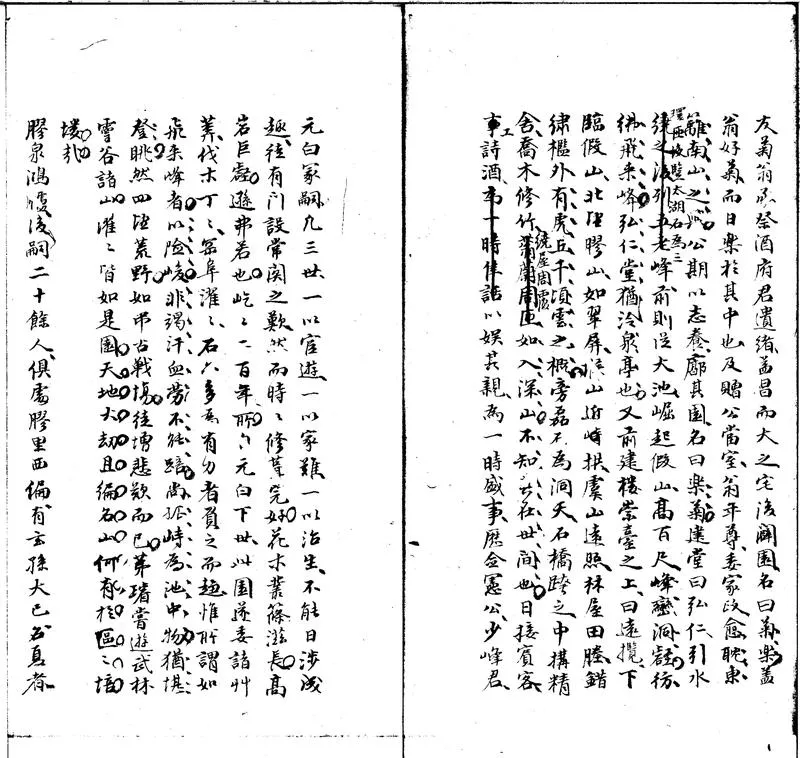 友菊翁承祭酒府君遺緒益昌而大之宅後闢園名曰菊樂蓋
翁好菊而日樂於其中也及贈公當室翁年尊委家政愈眈東
籬南山之公期以志養廓其園名曰樂菊建堂曰弘仁引水
環匝後壁太湖石為三
繞之後列五老峰前則從大池崛起假山高百尺峰巒洞壑彷
彿飛來峰弘仁堂猶冷泉亭也又前建樓崇臺之上曰遠攬下
臨假山北望膠山如翠屏山遠峙拱虞山遠照林屋田塍錯
繡檻外有虎丘千頃雲之概旁磊石為洞天石橋跨之中搆精
舍喬木修竹蒲蘭周匝如入深山不知此在世間也日接賓客
繞屋周覆
事詩酒為一時佳話以娛其親為一時盛事歷合憲公少峰君
工
元白冢嗣凡三世一以宦遊一以家難一以治生不能日涉成
趣徒有門設常關之歎然而時時修葺完好花木叢篠滋長高
岩巨壑遜弗若也屹屹二百年所元白下世此園遂委諸艸
莽伐木丁丁罘阜濯濯石大多為有力者負之而趨惟所謂如
飛來峰者以險峻非竭汗血勞不能踣尚孤峙為池中物猶堪
登眺然四望荒野如弔古戰場徒增悲歎而已第璿嘗遊武林
雪谷諸山濯濯皆如是園天地大劫且編名山何有於區區培
塿哉
膠泉鴻後嗣二十餘人俱處膠里西偏有玄孫大己者